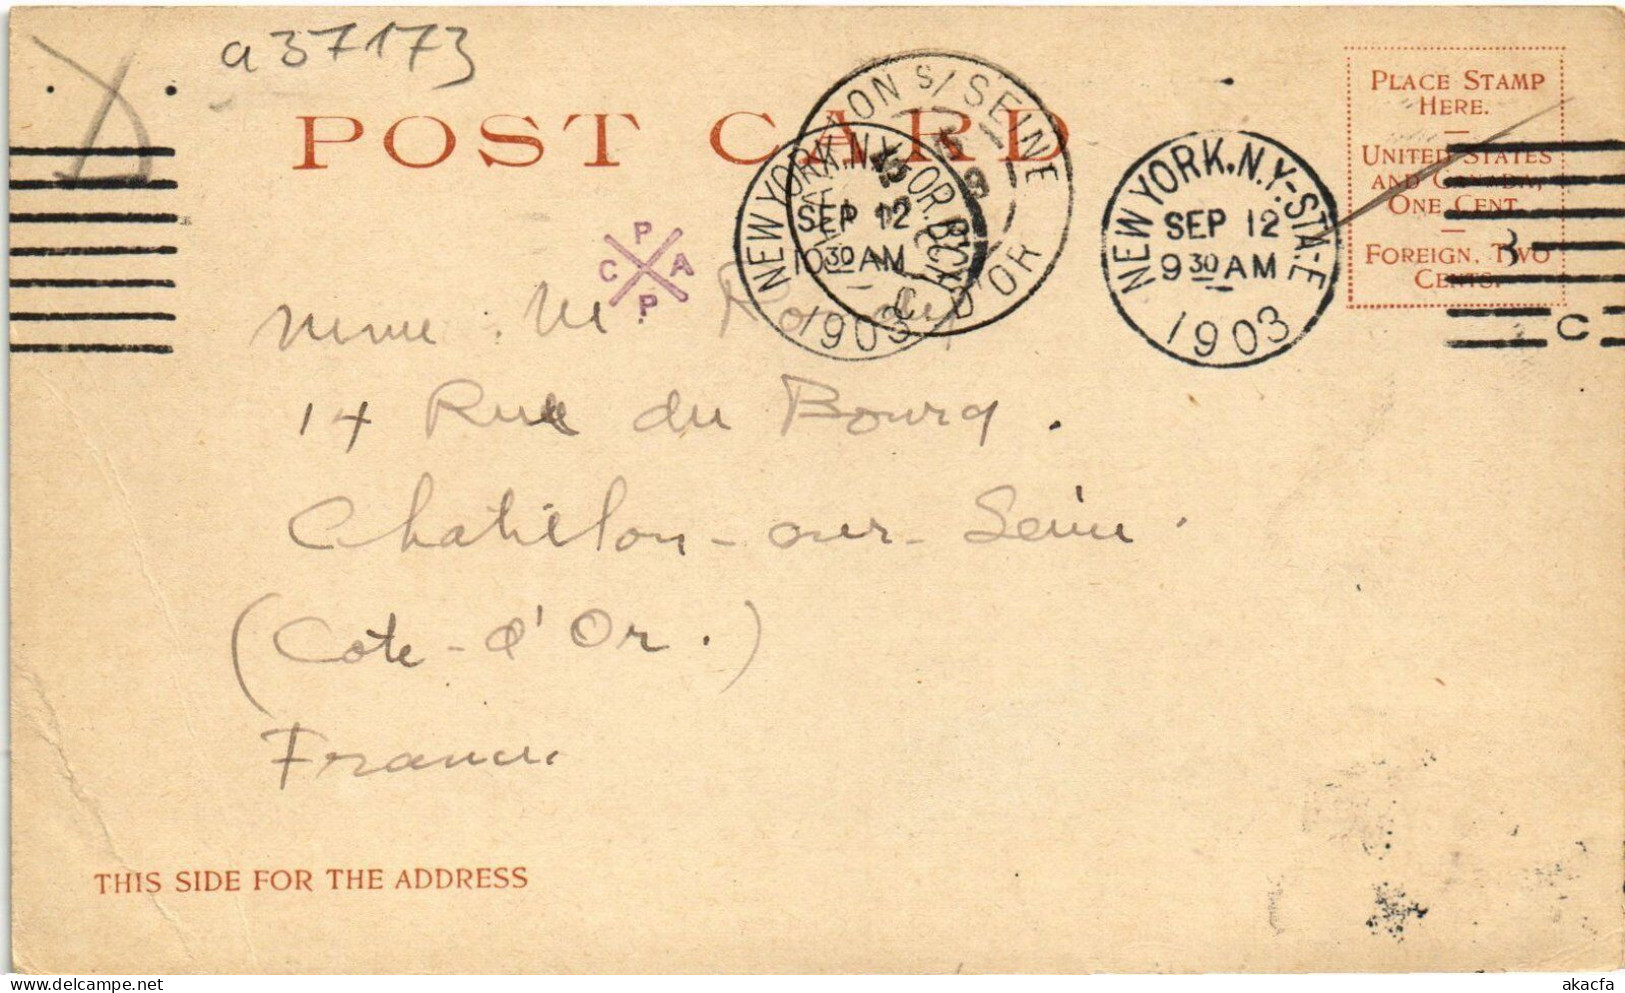 a37173
POST CARD
PLACE STAMP
HERE.
UNITED STATES
AND CANADA,
ONE CENT.
FOREIGN, TWO
CENTS.
NEW YORK, N.Y. FOR. BCH
SEP 12
10 30 AM
1903
S/ SEINE
C. D'OR
NEW YORK, N.Y.-STA-E
SEP 12
9 30 AM
1903
3
C
P
C A
P
Mme. M.
14 Rue du Bourg.
Chatillon-sur-Seine.
(Cote-d'Or.)
France.
THIS SIDE FOR THE ADDRESS
akacfa